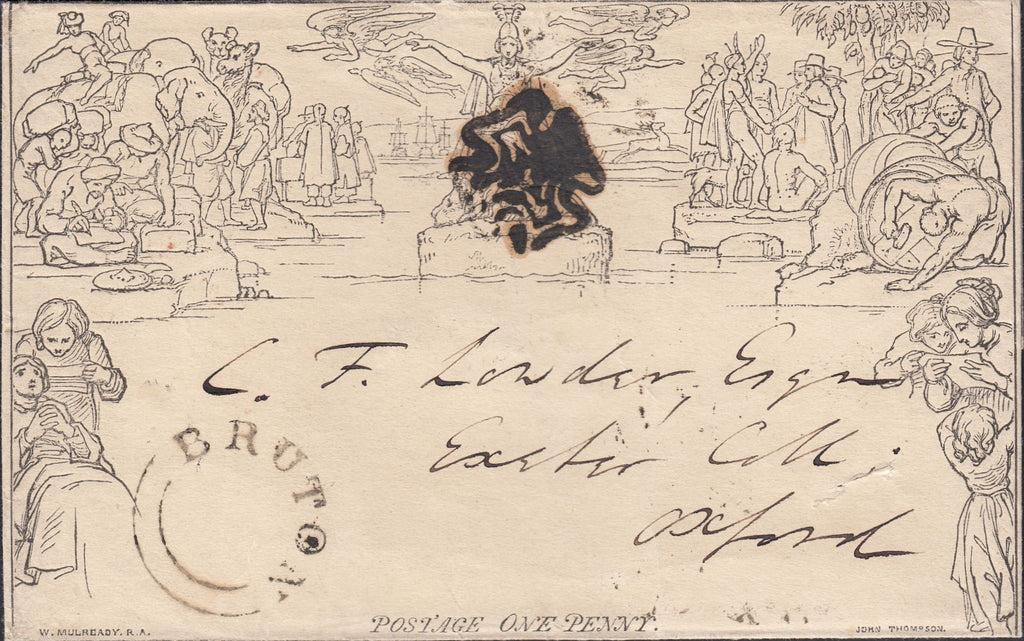 C. F. Lowder, Esqre
Exeter Coll.
Oxford
BRUTON
POSTAGE ONE PENNY.
W. MULREADY. R.A.
JOHN THOMPSON.